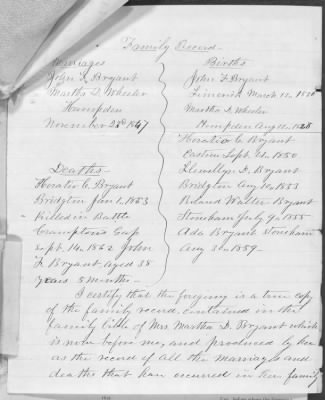 Family Record
Marriages
John F Bryant
Martha D. Wheeler
Hampden
November 28th 1847
Deaths
Horatio C. Bryant
Bridgton Jan 1, 1853
Killed in Battle
Cramptons Gap
Sept. 14, 1862 John
F Bryant aged 38
years 5 months
Births
John F Bryant
Limerick March 12,
Martha D. Wheeler
Hampden Aug 11, 1828
Horatio C Bryant
Sept. 21, 1850
Llewellyn D. Bryant
Bridgton Aug 10, 1853
Roland Walter Bryant
Stoneham July 9th 1855
Ada Bryant Stoneham
Aug 30, 1859
I certify that the foregoing is a true copy
of the family record, contained in the
family bible of Mrs Martha D. Bryant which
is now before me, and produced by her
as the record of all the marriages and
deaths that have occurred in her family